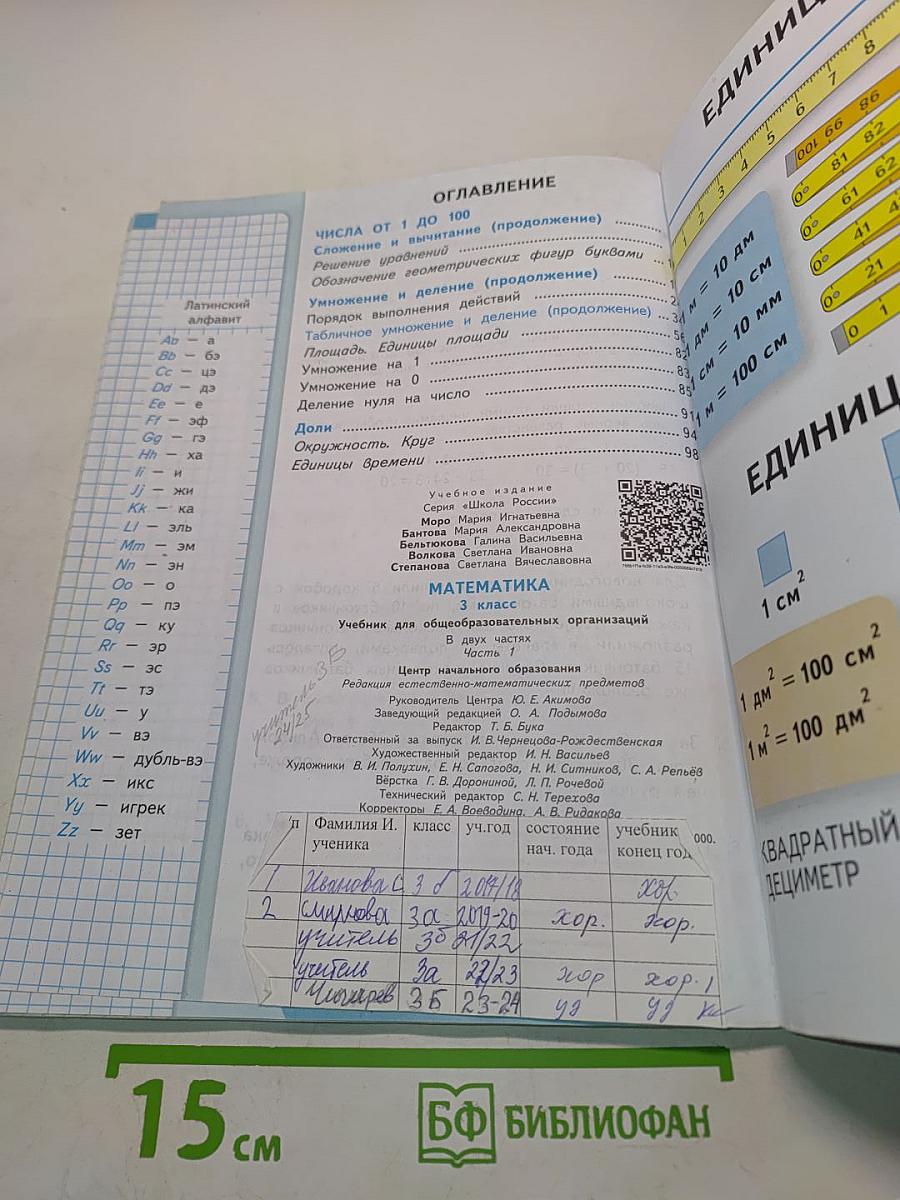 Латинский
алфавит
Aa — а
Bb — бэ
Cc — цэ
Dd — дэ
Ee — е
Ff — эф
Gg — гэ
Hh — ха
Ii — и
Jj — жи
Kk — ка
Ll — эль
Mm — эм
Nn — эн
Oo — о
Pp — пэ
Qq — ку
Rr — эр
Ss — эс
Tt — тэ
Uu — у
Vv — вэ
Ww — дубль-вэ
Xx — икс
Yy — игрек
Zz — зет
ОГЛАВЛЕНИЕ
ЧИСЛА ОТ 1 ДО 100
Сложение и вычитание (продолжение)
Решение уравнений
Обозначение геометрических фигур буквами
Умножение и деление (продолжение)
Порядок выполнения действий
Табличное умножение и деление (продолжение)
Площадь. Единицы площади 56
Умножение на 1 82
Умножение на 0 83
Деление нуля на число 85
Доли 91
Окружность. Круг 94
Единицы времени 98
Учебное издание
Серия «Школа России»
Моро Мария Игнатьевна
Бантова Мария Александровна
Бельтюкова Галина Васильевна
Волкова Светлана Ивановна
Степанова Светлана Вячеславовна
МАТЕМАТИКА
3 класс
Учебник для общеобразовательных организаций
В двух частях
Часть 1
Центр начального образования
Редакция естественно-математических предметов
Руководитель Центра Ю. Е. Акимова
Заведующий редакцией О. А. Подымова
Редактор Т. Б. Бука
Ответственный за выпуск И. В. Чернецова-Рождественская
Художественный редактор И. Н. Васильев
Художники В. И. Полухин, Е. Н. Сапогова, Н. И. Ситников, С. А. Репьёв
Вёрстка Г. В. Дорониной, Л. П. Рочевой
Технический редактор С. Н. Терехова
Корректоры Е. А. Воеводина, А. В. Ридакова
000.
учитель 3Б
24/25
п Фамилия И. ученика класс уч.год состояние нач. года учебник конец год
1 Иванова С 3 б 2017/18 хор.
2 Смирнова 3а 2019-20 хор. хор.
учитель 3б 21/22
учитель 3а 22/23 хор хор.
3Б 23-24 уд уд
ЕДИНИЦ
1 2 3 4 5 6 7 8
100 99 98
81 82
61 62
41
21
0 1
1 м = 10 дм
1 дм = 10 см
1 см = 10 мм
1 м = 100 см
ЕДИНИЦ
1 см²
1 дм² = 100 см²
1 м² = 100 дм²
КВАДРАТНЫЙ
ДЕЦИМЕТР
15 см
БФ БИБЛИОФАН